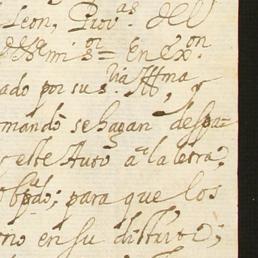 Leon, Prov.as del
En ex.on
ado por su s.ria Illma, y
mandò se hagan despa=
este Auto a la letra,
obpdo; para que los
no en su distrito;